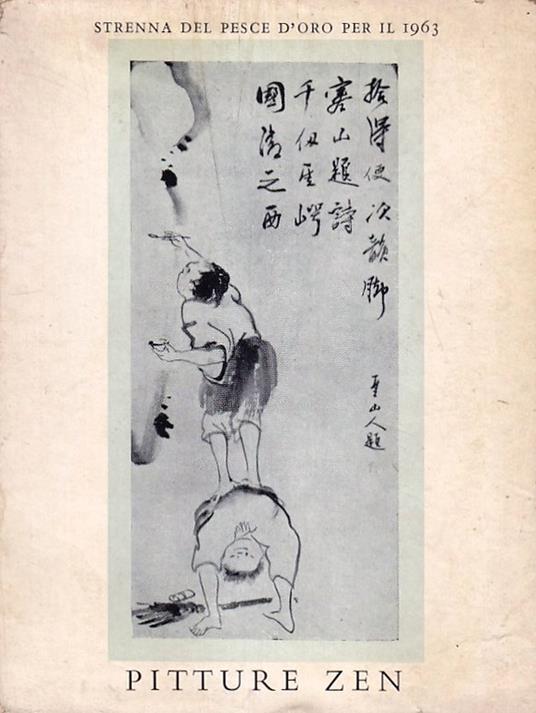 STRENNA DEL PESCE D'ORO PER IL 1963
國清之西
千仭
寒山題詩
拾得便次韻脚
山人題
PITTURE ZEN